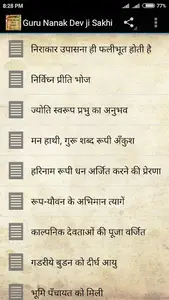 8:28 PM
Guru Nanak Dev ji Sakhi
निराकार उपासना ही फलीभूत होती है
निर्विघ्न प्रीति भोज
ज्योति स्वरूप प्रभु का अनुभव
मन हाथी, गुरू शब्द रूपी अँकुश
हरिनाम रूपी धन अर्जित करने की प्रेरणा
रूप-यौवन के अभिमान त्यागें
काल्पनिक देवताओं की पूजा वर्जित
गडरीये बुडन को दीर्घ आयु
भूमि पँचायत को मिली